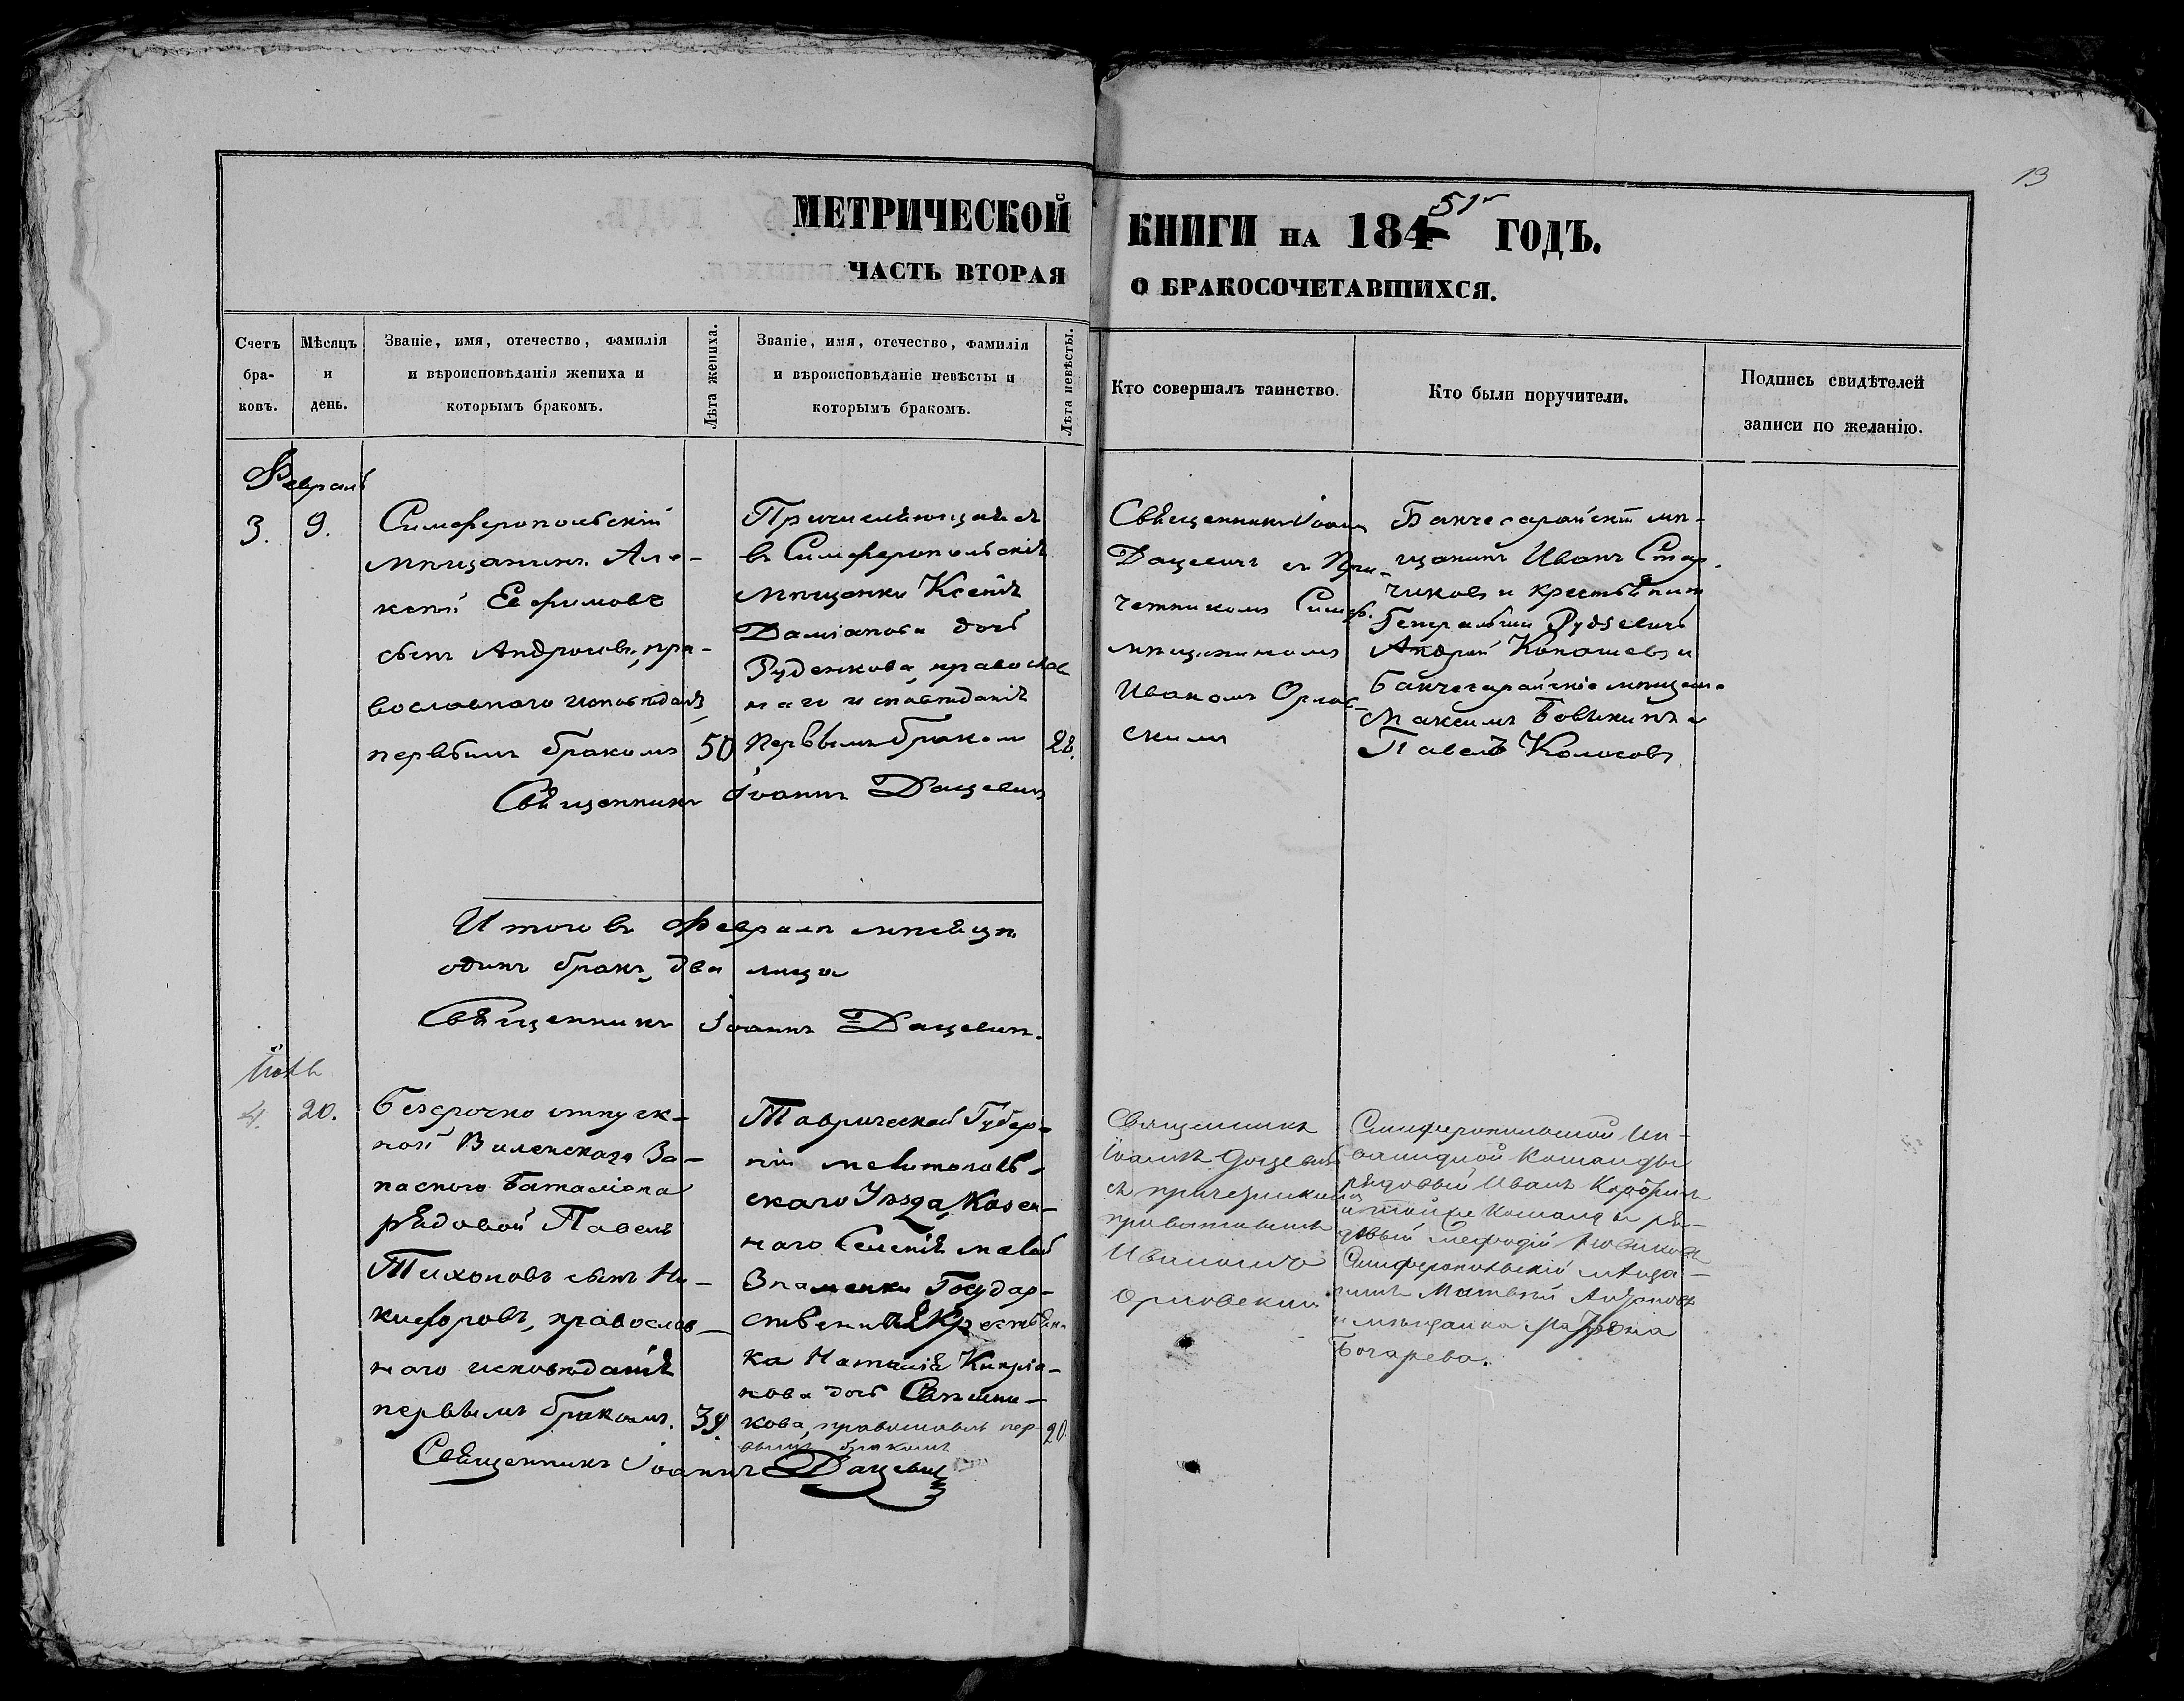 13
МЕТРИЧЕСКОЙ КНИГИ НА 184 51 ГОДЪ.
ЧАСТЬ ВТОРАЯ О БРАКОСОЧЕТАВШИХСЯ.
Счетъ
бра-
ковъ.
Мѣсяцъ
и
день.
Званіе, имя, отечество, фамилія
и вѣроисповѣданія жениха и
которымъ бракомъ.
Лѣта жениха.
Званіе, имя, отечество, фамилія
и вѣроисповѣданіе невѣсты и
которымъ бракомъ.
Лѣта невѣсты.
Кто совершалъ таинство.
Кто были поручители.
Подпись свидѣтелей
записи по желанію.
Февраль
3.
9.
Симферопольскій
мѣщанинъ Але-
ксѣй Евфимовъ
сынъ Андросовъ, пра-
вославнаго исповѣданія,
первымъ бракомъ
50
въ Симферопольскія
мѣщанки Ксенія
Даміанова дочь
Руденкова, православ
наго исповѣданія
первымъ бракомъ
22.
Священникъ Іоаннъ
Дацевичъ съ При-
четникомъ Симф.
мѣщаниномъ
Иваномъ Орлов-
скимъ
Бахчесарайскій мѣ-
щанинъ Иванъ Стар
чиковъ и крестьянинъ
Генеральши Рудзевичъ
Андрей Коношевъ и
Бахчесарайскіе мѣщане
Максимъ Бовыкинъ и
Павелъ Колосовъ
Священникъ Іоаннъ Дацевичъ
Итого въ Февралѣ мѣсяцѣ
одинъ бракъ, два лица
Священникъ Іоаннъ Дацевичъ.
4.
20.
Безсрочно отпуск-
ной Виленскаго За-
паснаго Баталіона
рядовой Павелъ
Тихоновъ сынъ Ни-
кифоровъ, православ-
наго исповѣданія
первымъ бракомъ.
Таврической Губер-
ніи Мелитополь-
скаго Уѣзда, Казен-
наго Селенія малой
Знаменки Государ-
ственная Крестьян-
ка Наталія Кипріа-
нова дочь
кова, православн. пер-
вымъ бракомъ
20.
Священникъ
Іоаннъ Дацевичъ
съ причетникомъ
приватнымъ
Орловскимъ
Симферопольской Ин-
валидной Команды
рядовый Иванъ
и тойже Команды ря-
довый Мефодій Новиковъ
Симферопольскій мѣща-
нинъ Матвѣй
и мѣщанка Матрона
Бочарева.
Священникъ Іоаннъ Дацевичъ